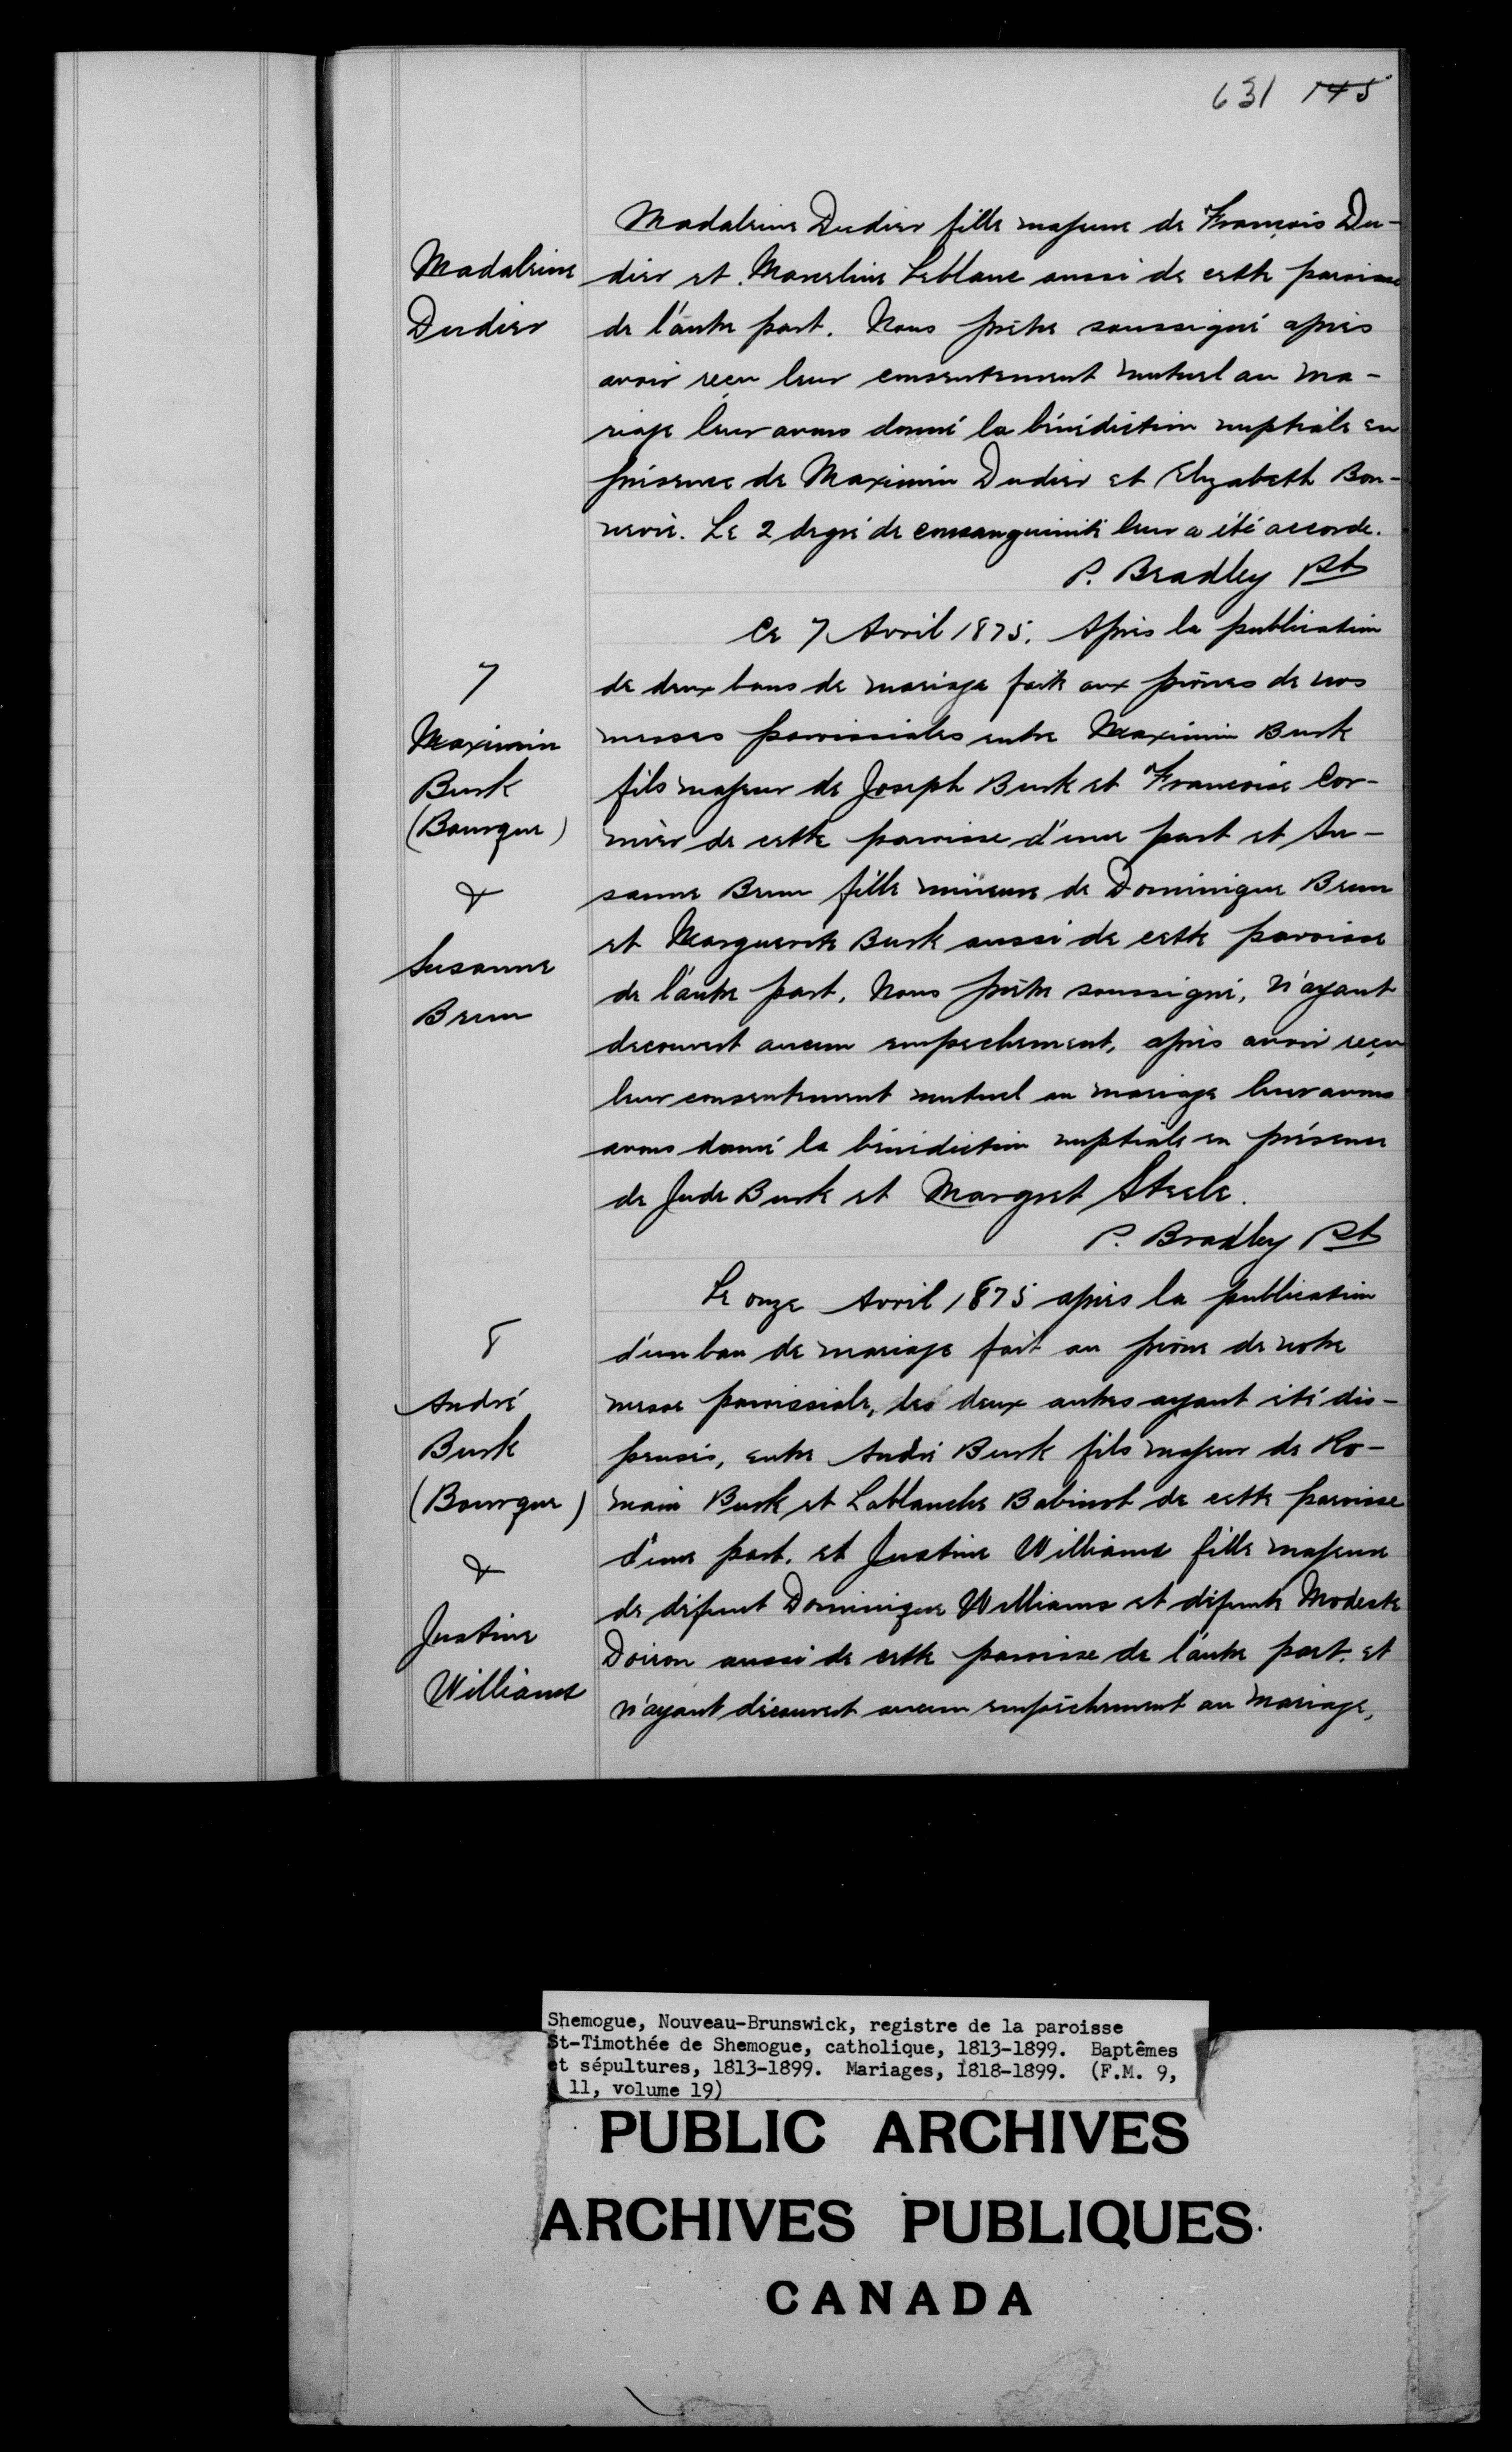 631 145
Madaleine Dudier fille majeure de François Du-
dier et Marceline Leblanc aussi de cette paroisse
de l'autre part. Nous prêtre soussigné après
avoir reçu leur consentement mutuel au ma-
riage leur avons donné la bénédiction nuptiale en
présence de Maximin Dudier et Elizabeth Bon-
nevie. Le 2 degré de consanguinité leur a été accorde.
P. Bradley Pst
Madaleine
Dudier
Ce 7 Avril 1875. Après la publication
de deux bans de mariage faite aux prônes de nos
messes paroissiales entre Maximin Burk
fils majeur de Joseph Burk et Francoise Cor-
mier de cette paroisse d'une part et Su-
sanne Brun fille mineure de Dominique Brun
et Marguerite Burk aussi de cette paroisse
de l'autre part. Nous prêtre soussigné, n'ayant
decouvert aucun empechement, après avoir reçu
leur consentement mutuel au mariage leur avons
avons donné la bénédiction nuptiale en présence
de Jude Burk et Margret Steele.
P. Bradley Pst
7
Maximin
Burk
(Bourque)
&
Susanne
Brun
Le onze Avril 1875 après la publication
d'un ban de mariage fait au prône de notre
messe paroissiale, les deux autres ayant été dis-
pensés, entre André Burk fils majeur de Ro-
main Burk et Lablanche Babinot de cette paroisse
d'une part. et Justine Williams fille majeure
de défunt Dominique Williams et défunte Modeste
Doiron aussi de cette paroisse de l'autre part. et
n'ayant découvert aucun empêchement au mariage,
8
André
Burk
(Bourque)
&
Justine
Williams
Shemogue, Nouveau-Brunswick, registre de la paroisse
St-Timothée de Shemogue, catholique, 1813-1899. Baptêmes
et sépultures, 1813-1899. Mariages, 1818-1899. (F.M. 9,
11, volume 19)
PUBLIC ARCHIVES
ARCHIVES PUBLIQUES
CANADA